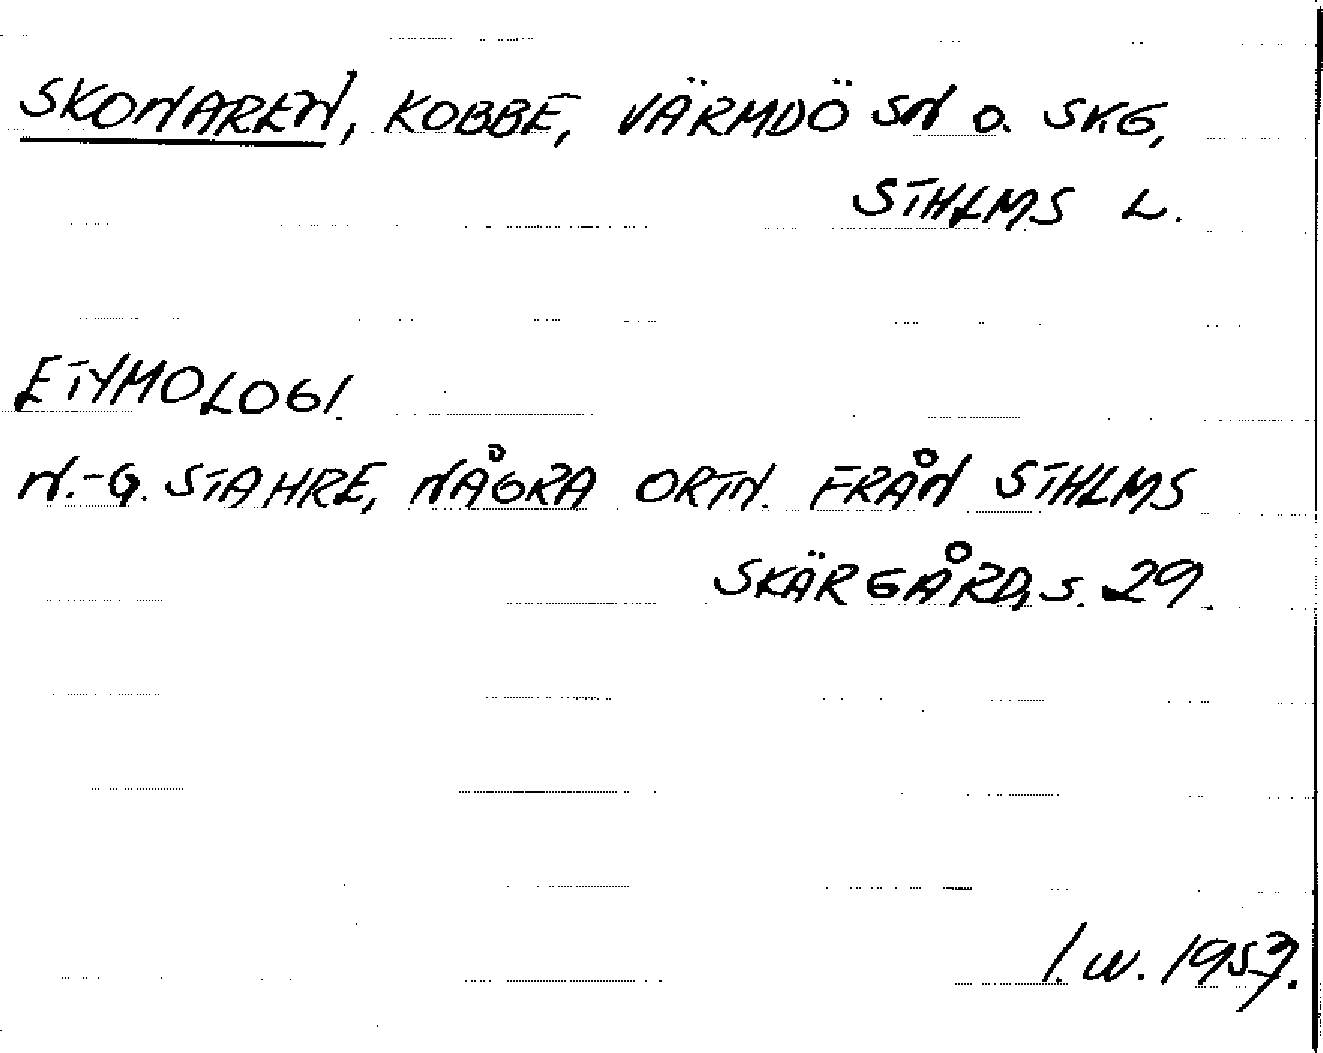 SKONAREN, KOBBE, VÄRMDÖ SN O. SKG,
STHLMS L.
ETYMOLOGI.
N.-G. STAHRE, NÅGRA ORTN. FRÅN STHLMS
SKÄRGÅRD, S. 29.
I.W. 1957.